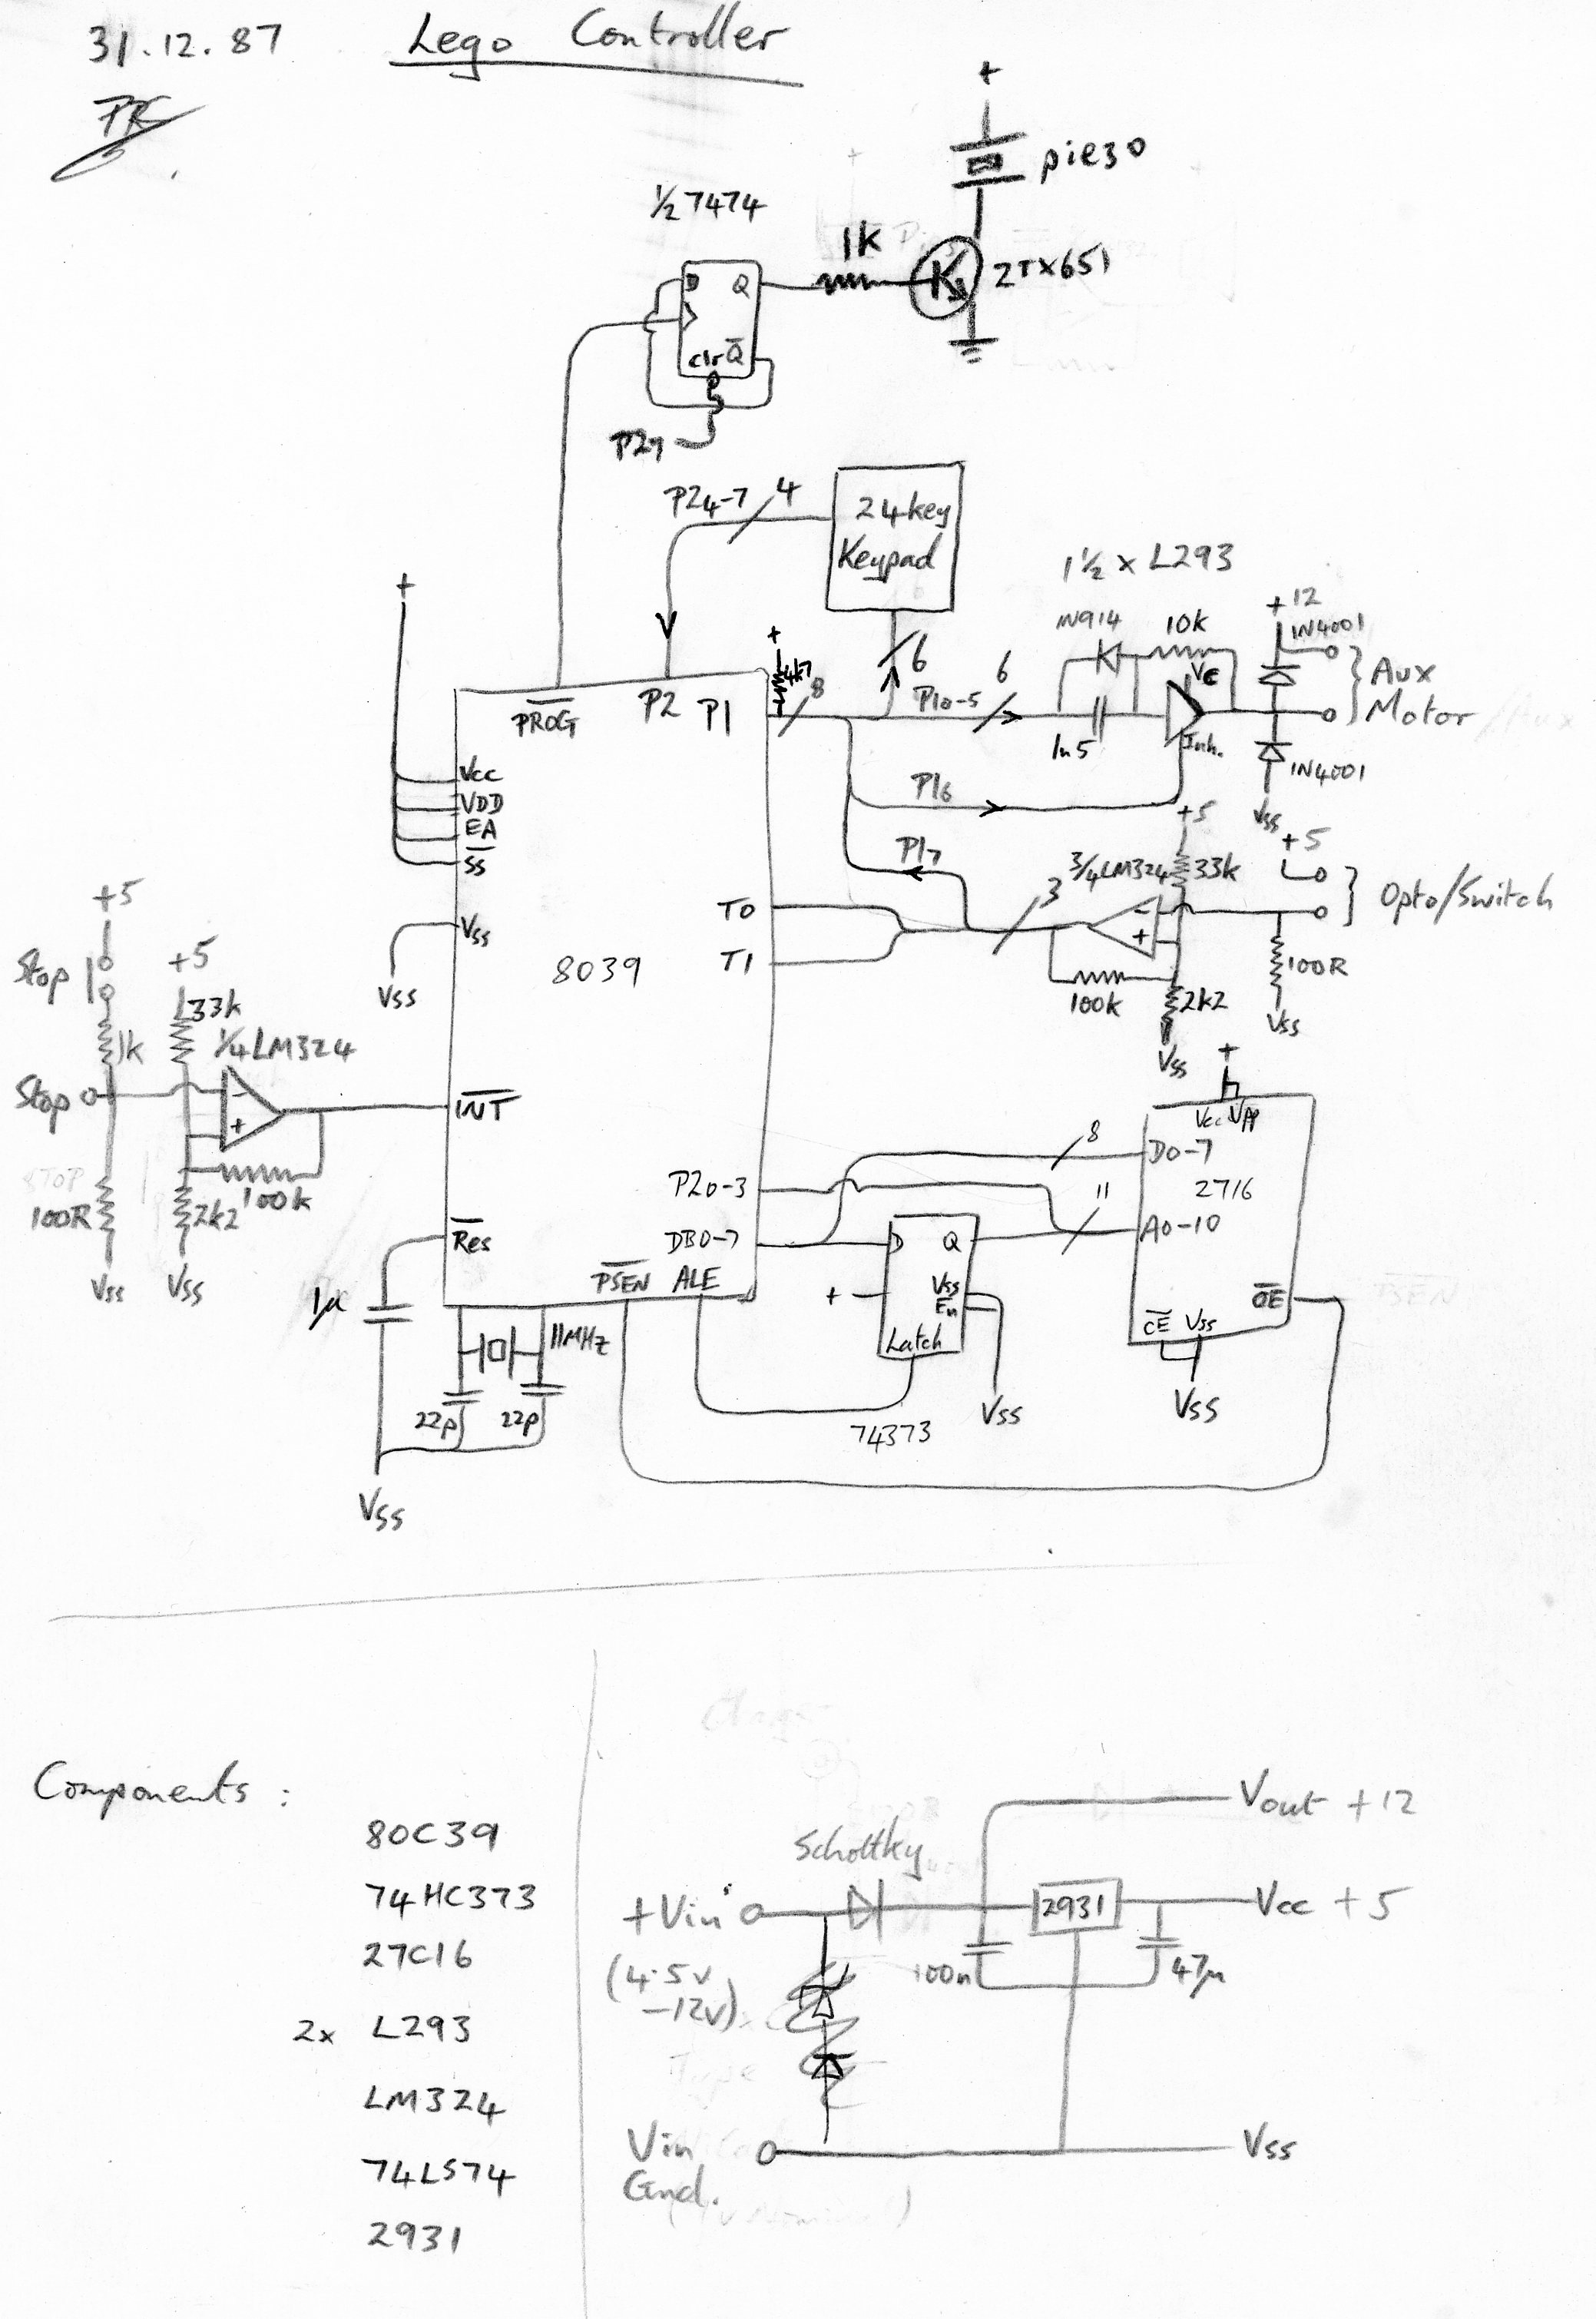 31.12.87 Lego Controller
+
piezo
½ 7474
1K
ZTX651
D Q
clr Q̅
P27
P24-7 4
24 key
Keypad
1½ x L293
+
+
4k7
8
6
P10-5
6
1N914
10k
+12
1N4001
Aux
Motor
VC
1n5
Inh.
1N4001
Vss
P̅R̅O̅G̅ P2 P1
Vcc
VDD
EA
S̅S̅
Vss
Vss
P16
P17
+5
3/4 LM324
33k
+5
Opto/Switch
T0
T1
8039
3
-
+
100k
2k2
100R
Vss
Vss
+5
Stop
+5
33k
1k
¼ LM324
Stop
-
+
100k
100R
2k2
Vss Vss
I̅N̅T̅
R̅e̅s̅
P20-3
DB0-7
P̅S̅E̅N̅ ALE
+
Vcc Vpp
8
D0-7
2716
11
A0-10
O̅E̅
C̅E̅ Vss
Vss
D Q
+
Vss
E̅n̅
Latch
Vss
74373
1µ
11MHz
22p 22p
Vss
Components :
80C39
74HC373
27C16
2x L293
LM324
74LS74
2931
Vout +12
Schottky
+Vin
(4.5v
-12v)
2931
Vcc +5
100n
47µ
Vin
Gnd.
Vss